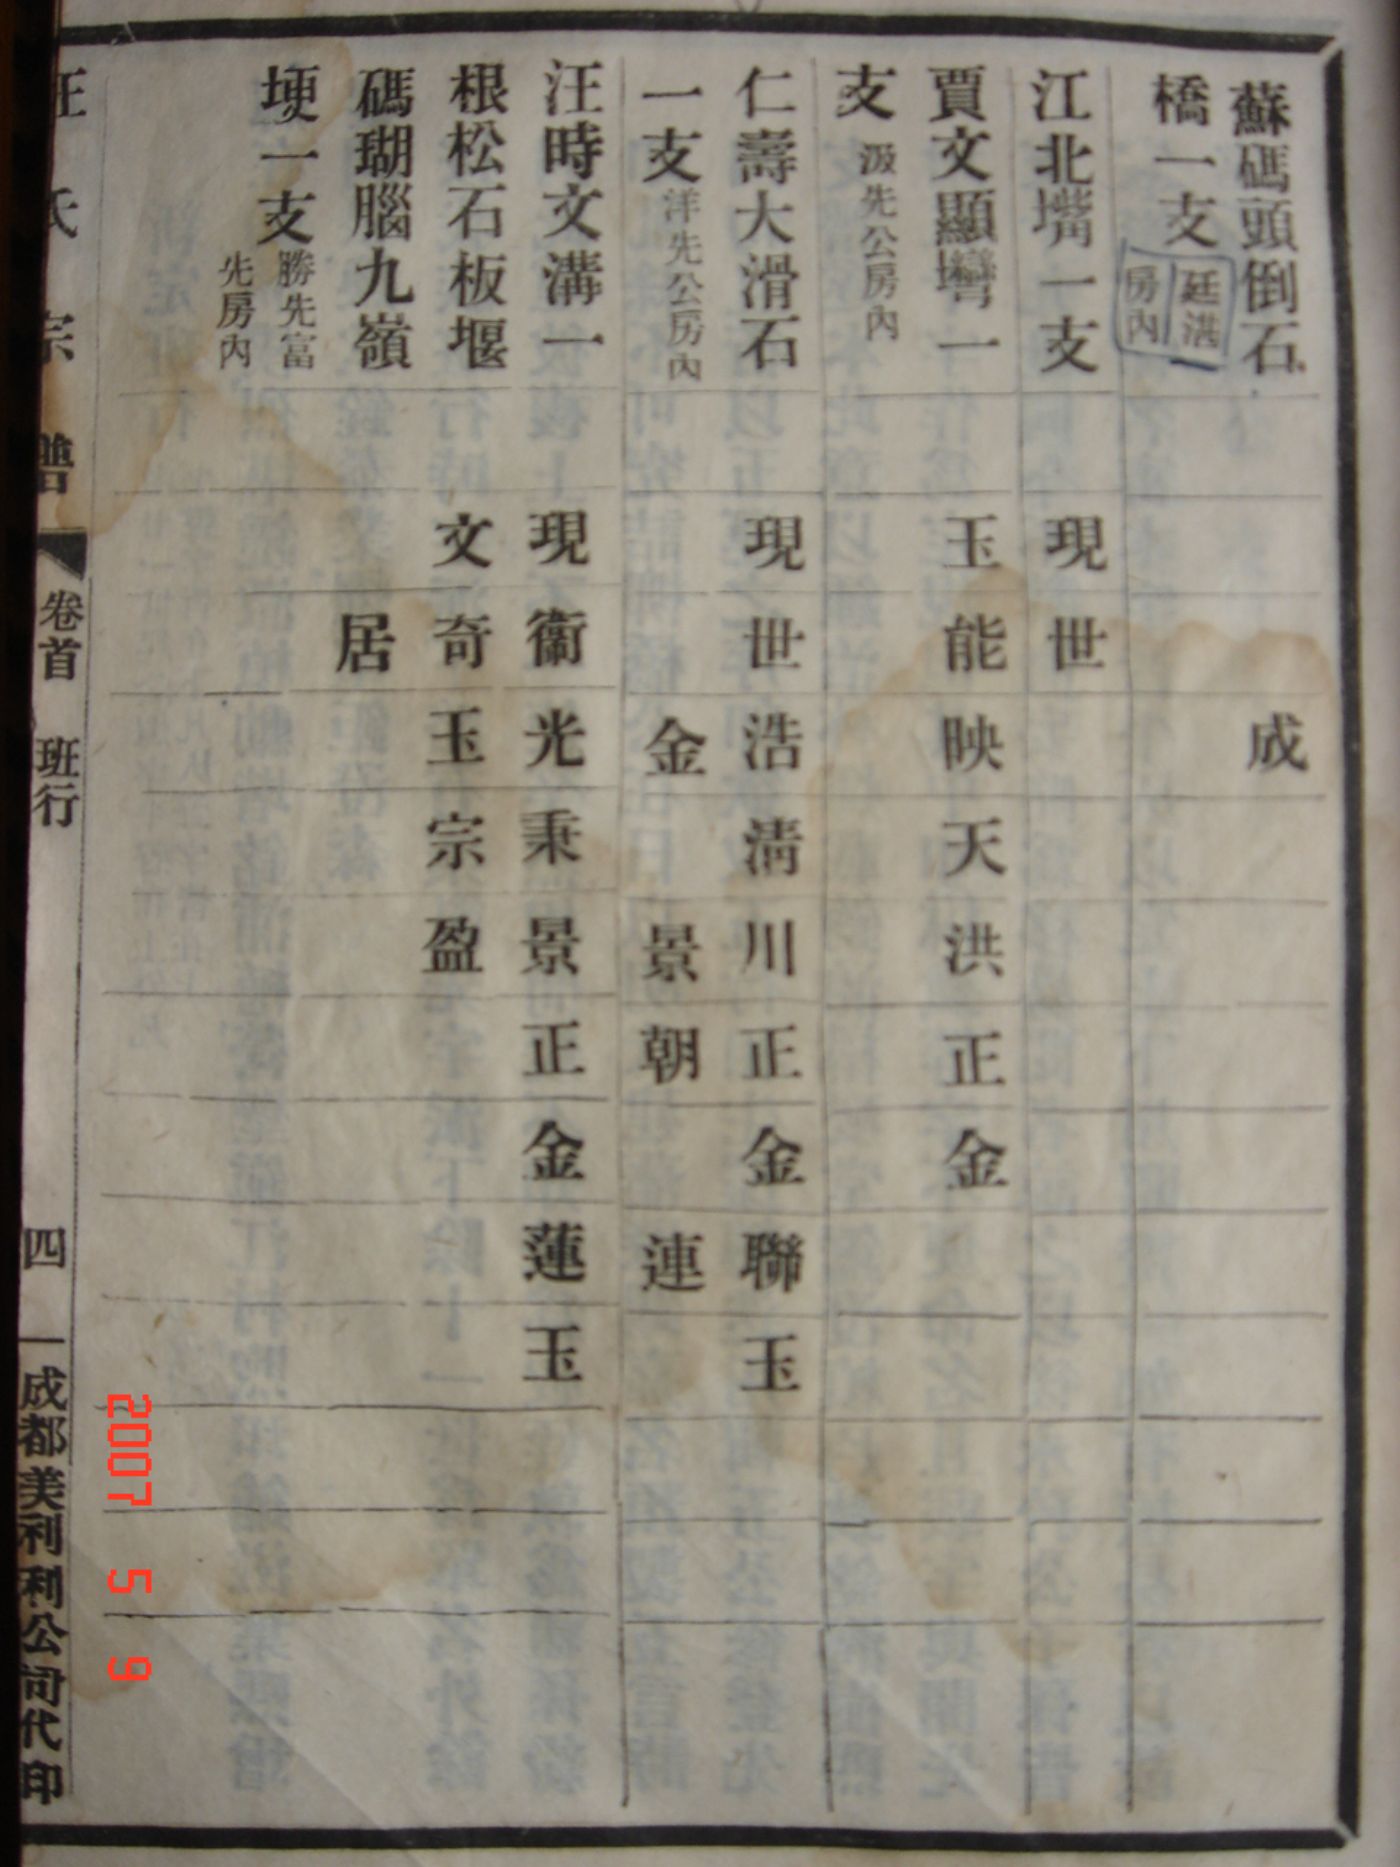 蘇碼頭倒石 成
橋一支 廷洪房內
江北嘴一支 現世
賈文顯灣一 玉能映天洪正金
支 汲先公房內
仁壽大滑石 現世浩清川正金聯玉
一支 洋先公房內 金景朝連
汪時文溝一 現衞光秉景正金蓮玉
根松石板堰 文奇玉宗盈
碼瑚腦九嶺 居
埂一支 勝先富先房內
汪氏宗譜 卷首 班行 四 成都美利利公司代印
2007 5 9